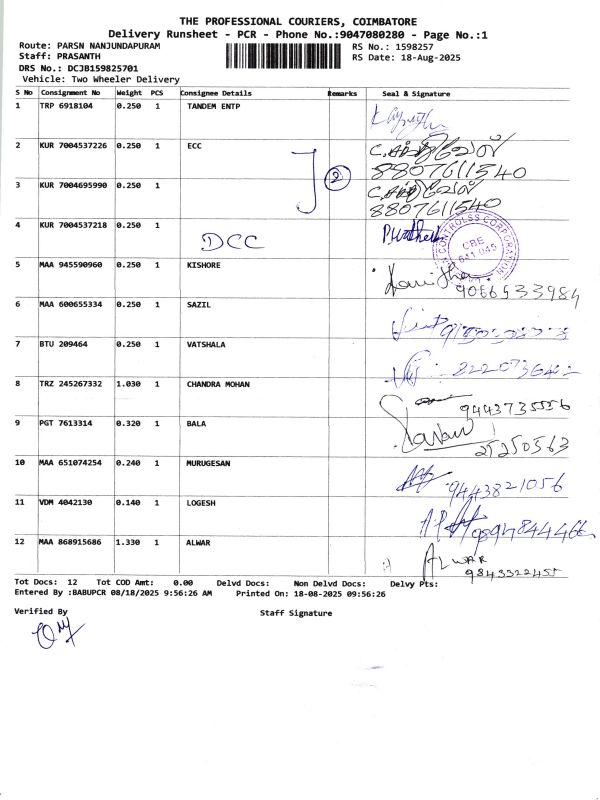 THE PROFESSIONAL COURIERS, COIMBATORE
Delivery Runsheet - PCR - Phone No.:9047080280 - Page No.:1
Route: PARSN NANJUNDAPURAM
RS No.: 1598257
Staff: PRASANTH
RS Date: 18-Aug-2025
DRS No.: DCJB159825701
Vehicle: Two Wheeler Delivery
S No Consignment No Weight PCS Consignee Details Remarks Seal & Signature
1 TRP 6918104 0.250 1 TANDEM ENTP
2 KUR 7004537226 0.250 1 ECC
8807611540
3 KUR 7004695990 0.250 1
2
8807611540
4 KUR 7004537218 0.250 1
DCC
CBE
641 045
5 MAA 945590960 0.250 1 KISHORE
9066533984
6 MAA 600655334 0.250 1 SAZIL
7 BTU 209464 0.250 1 VATSHALA
8 TRZ 245267332 1.030 1 CHANDRA MOHAN
9443735556
9 PGT 7613314 0.320 1 BALA
25250563
10 MAA 651074254 0.240 1 MURUGESAN
9443821056
11 VDM 4042130 0.140 1 LOGESH
9894844466
12 MAA 868915686 1.330 1 ALWAR
ALWAR
9843322455
Tot Docs: 12 Tot COD Amt: 0.00 Delvd Docs: Non Delvd Docs: Delvy Pts:
Entered By :BABUPCR 08/18/2025 9:56:26 AM Printed On: 18-08-2025 09:56:26
Verified By
Staff Signature